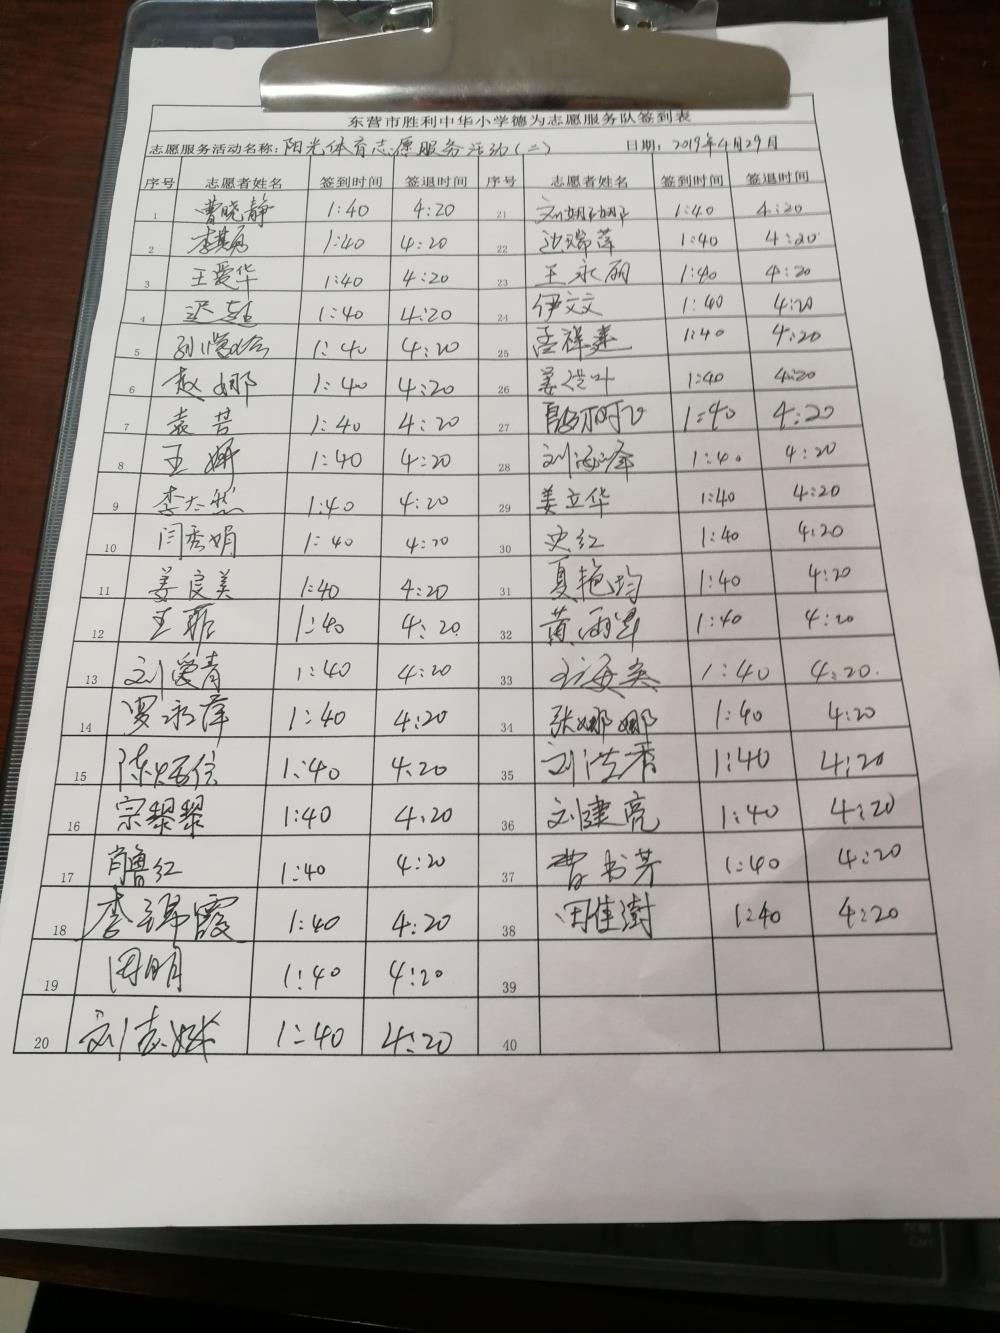 东营市胜利中华小学德为志愿服务队签到表
志愿服务活动名称：阳光体育志愿服务活动（二） 日期：2019年4月29日
序号 志愿者姓名 签到时间 签退时间 序号 志愿者姓名 签到时间 签退时间
1 曹晓静 1:40 4:20 21 刘娜娜 1:40 4:20
2 1:40 4:20 22 沈瑞萍 1:40 4:20
3 王爱华 1:40 4:20 23 王永丽 1:40 4:20
4 迟超 1:40 4:20 24 伊文文 1:40 4:20
5 1:40 4:20 25 孟祥 1:40 4:20
6 赵娜 1:40 4:20 26 姜 叶 1:40 4:20
7 袁苦 1:40 4:20 27 1:40 4:20
8 王娜 1:40 4:20 28 刘海峰 1:40 4:20
9 李杰然 1:40 4:20 29 姜立华 1:40 4:20
10 闫秀娟 1:40 4:20 30 史红 1:40 4:20
11 姜良美 1:40 4:20 31 夏艳均 1:40 4:20
12 王菲 1:40 4:20 32 黄雨军 1:40 4:20
13 刘爱青 1:40 4:20 33 王海英 1:40 4:20
14 罗永萍 1:40 4:20 34 张娜娜 1:40 4:20
15 陈 1:40 4:20 35 刘洪香 1:40 4:20
16 宗黎黎 1:40 4:20 36 刘建亮 1:40 4:20
17 肖鲁红 1:40 4:20 37 曹书芳 1:40 4:20
18 李锦霞 1:40 4:20 38 田佳澍 1:40 4:20
19 周明 1:40 4:20 39
20 刘志 1:40 4:20 40
Ctrl